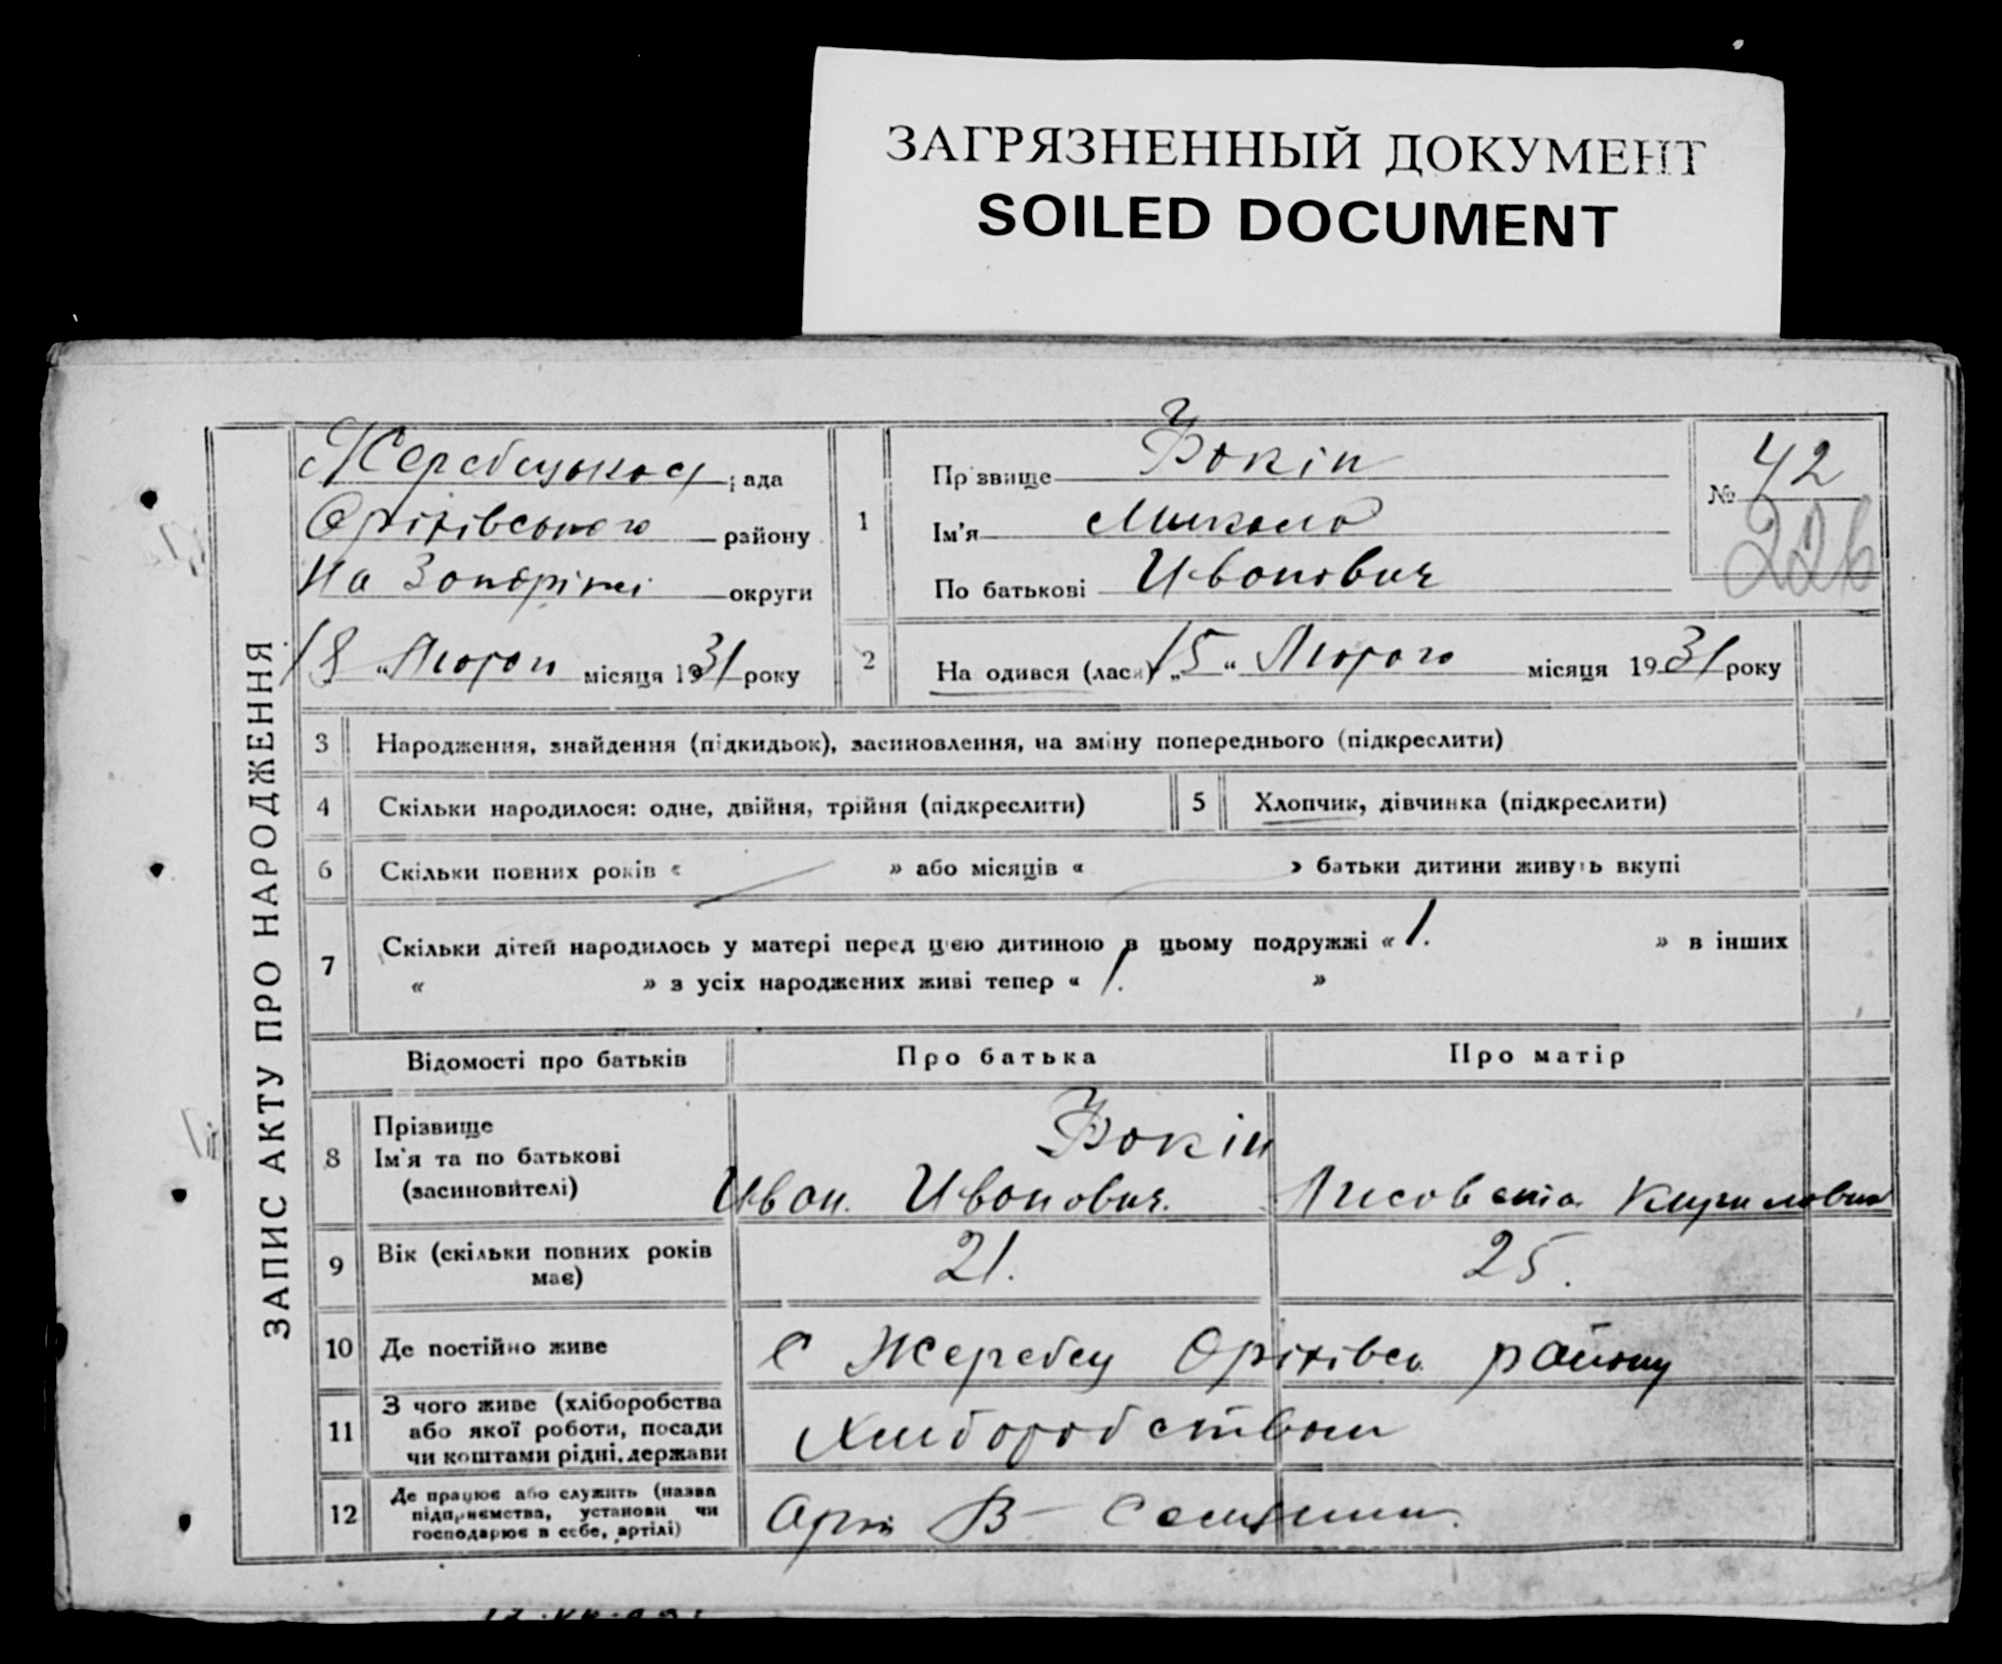 ЗАГРЯЗНЕННЫЙ ДОКУМЕНТ
SOILED DOCUMENT
ЗАПИС АКТУ ПРО НАРОДЖЕННЯ
Жеребецькая рада
Оріхівського району
на Запоріжі округи
18 „ Лютого місяця 1931 року
1
Прізвище Вокін
Ім'я Микола
По батькові Ивонович
№ 42
226
2
Народився (лася) „15“ Лютого місяця 1931 року
3 Народження, знайдення (підкидьок), засиновлення, на зміну попереднього (підкреслити)
4 Скільки народилося: одне, двійня, трійня (підкреслити)
5 Хлопчик, дівчинка (підкреслити)
6 Скільки повних років « » або місяців « » батьки дитини живуть вкупі
7 Скільки дітей народилось у матері перед цією дитиною в цьому подружжі « 1. » в інших
« » з усіх народжених живі тепер « 1. »
Відомості про батьків Про батька Про матір
8 Прізвище
Ім'я та по батькові
(засиновителі)
Вокін
Ивон. Ивонович. Лисовета Кириловна
9 Вік (скільки повних років має) 21. 25.
10 Де постійно живе с Жеребец Оріхівсь району
11 З чого живе (хліборобства
або якої роботи, посади
чи коштами рідні, держави
Хлиборобством
12 Де працює або служить (назва
підприємства, установи чи
господарює в себе, артілі)
Арт В